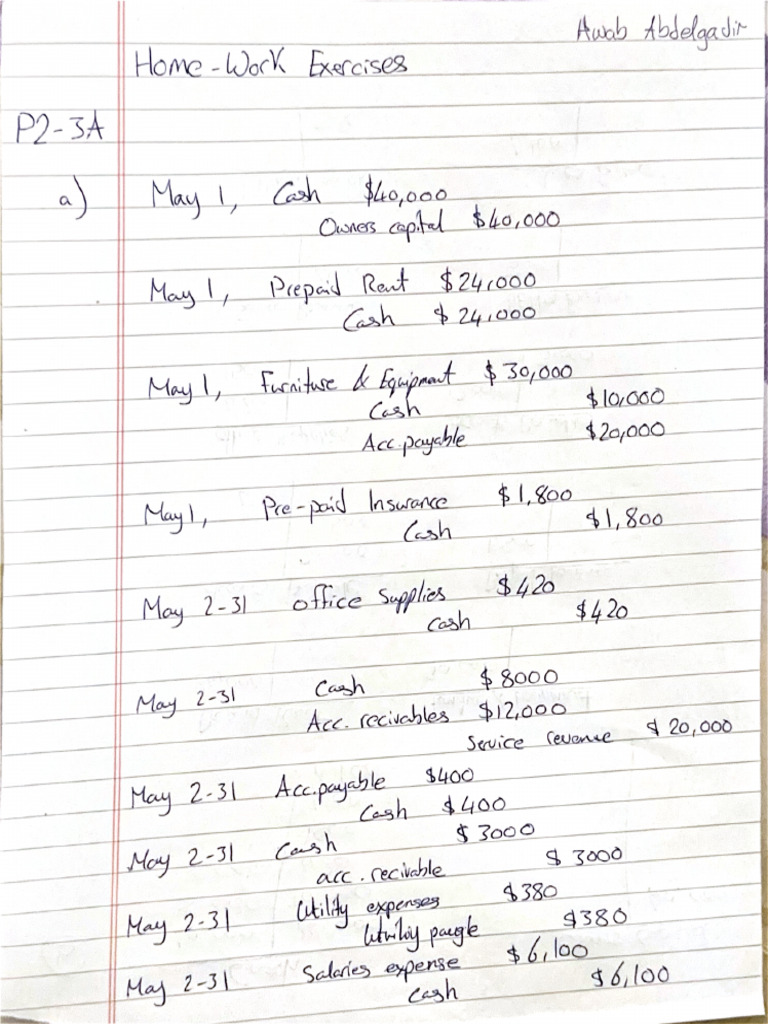 Awab Abdelgadir
Home-Work Exercises
P2-3A
a) May 1, Cash $40,000
Owners capital $40,000
May 1, Prepaid Rent $24,000
Cash $24,000
May 1, Furniture & Equipment $30,000
Cash $10,000
Acc.payable $20,000
May 1, Pre-paid Insurance $1,800
Cash $1,800
May 2-31 office Supplies $420
cash $420
May 2-31 Cash $8000
Acc. recivables $12,000
Service revenue $20,000
May 2-31 Acc.payable $400
Cash $400
May 2-31 Cash $3000
acc. recivable $3000
May 2-31 Utility expenses $380
$380
May 2-31 Salaries expense $6,100
cash $6,100